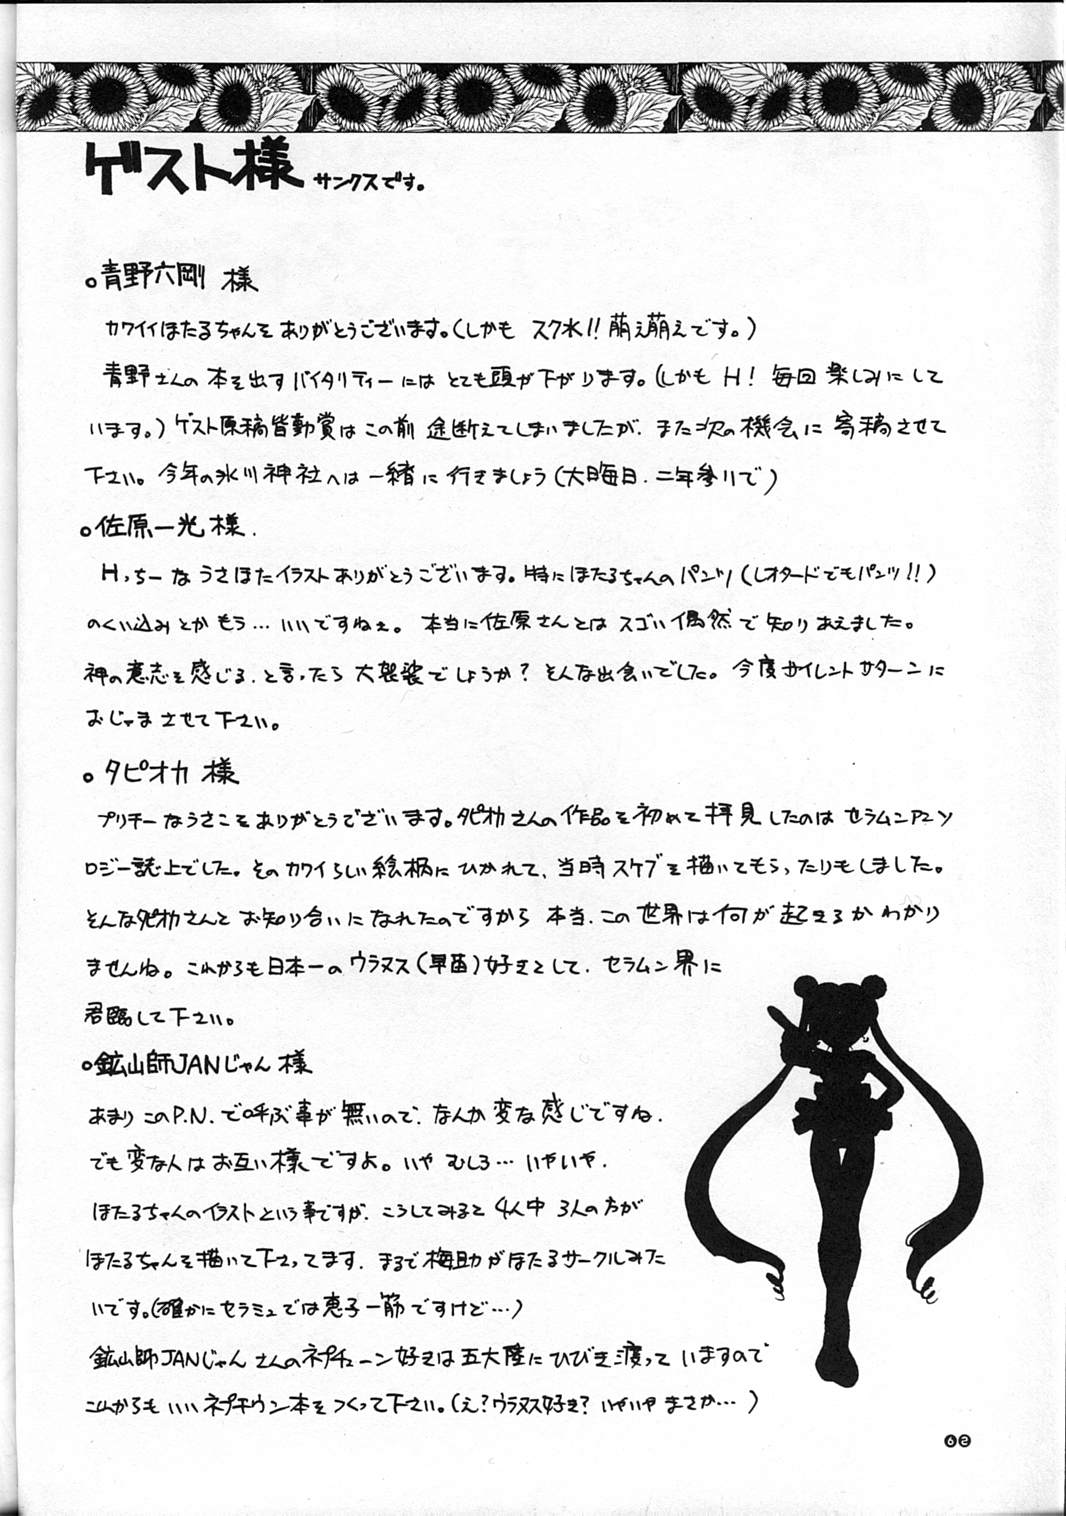 ゲスト様 サンクスです。
○青野六剛 様
カワイイほたるちゃんをありがとうございます。(しかも スク水!! 萌え萌えです。)
青野さんの 本を出す バイタリティーには とても頭が下がります。(しかも H! 毎回 楽しみにして
います。) ゲスト原稿皆勤賞は この前 途断えてしまいましたが、また次の機会に 寄稿させて
下さい。今年の氷川神社へは 一緒に 行きましょう(大晦日、二年参りで)
○佐原一光 様.
Hっちーな うさほたイラストありがとうございます。特に ほたるちゃんのパンツ(レオタードでもパンツ!!)
のくい込みとか もう…いいですねぇ。本当に佐原さんとは スゴい偶然で 知りあえました。
神の意志を感じる、と言ったら 大袈裟でしょうか? そんな出会いでした。今度サイレントサターンに
おじゃまさせて下さい。
○タピオカ 様
プリチーなうさこをありがとうございます。タピオカさんの作品を初めて拝見したのは セラムンアンソ
ロジー誌上でした。そのカワイらしい絵柄にひかれて、当時スケブを描いてもらったりもしました。
そんなタピオカさんと お知り合いに なれたのですから 本当、この世界は何が 起きるか わかり
ませんね。これからも日本一の ウラヌス(早苗)好きとして、セラムン界に
君臨して下さい。
○鉱山師JANじゃん 様
あまり このP.N.で呼ぶ事が無いので、なんか変な感じですね.
でも変な人は お互い様ですよ。いや むしろ…いやいや.
ほたるちゃんのイラストという事ですが、こうしてみると 4人中 3人の方が
ほたるちゃんを描いて下さってます、まるで梅助がほたるサークルみた
いです。(確かにセラミュでは恵子一筋ですけど…)
鉱山師JANじゃん さんのネプチューン好きは 五大陸に ひびき渡って いますので
これからも いい ネプチウン本を つくって下さい。(え? ウラヌス好き? いやいや まさか…)
62